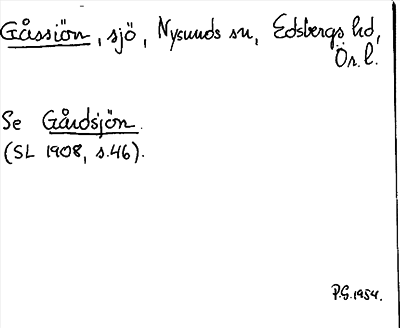 Gåssiön, sjö, Nysunds sn, Edsbergs hd,
Ör. l.
Se Gårdsjön.
(SL 1908, s.46).
P.G. 1954.